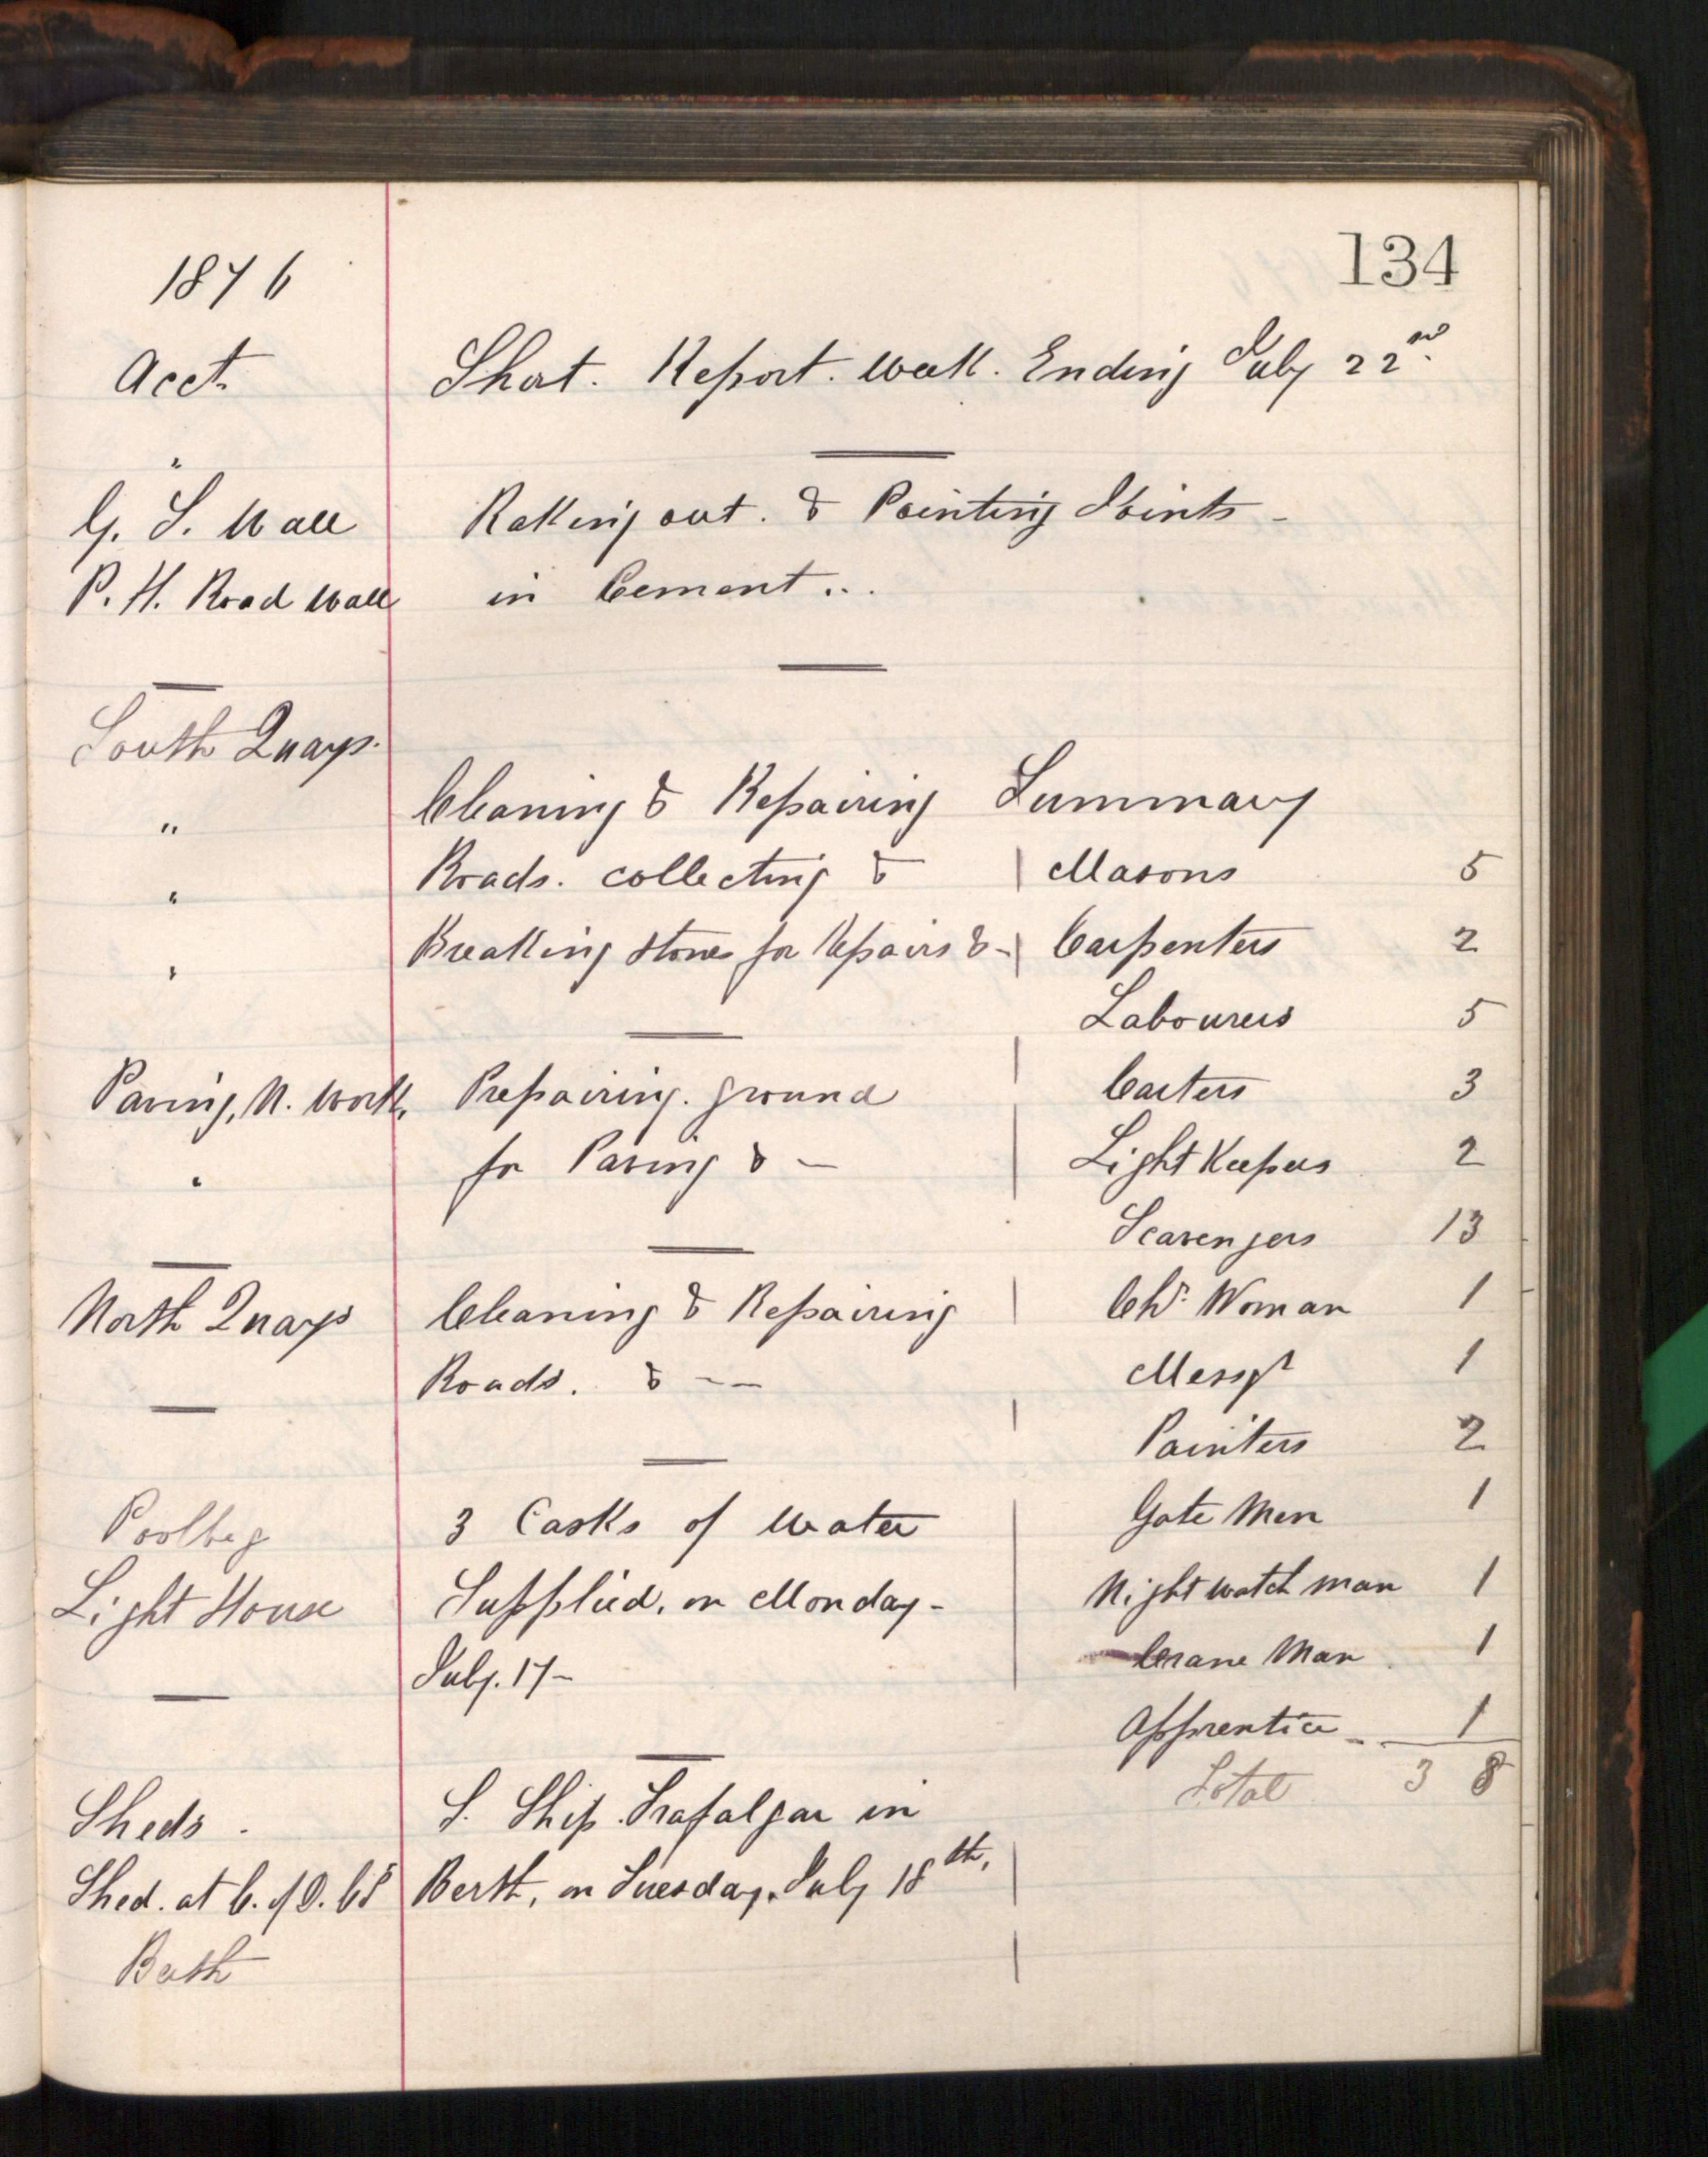 134
1876
Acct. Short. Report. Week. Ending July 22nd.
"
G. S. Wall Raking out. & Pointing Joints -
P. H. Road Wall in Cement ...
South Quays.
" Cleaning & Repairing Summary
" Roads. collecting & Masons 5
" Breaking stones for Repairs & - Carpenters 2
Labourers 5
Paving, N. Work, Prepairing. ground Carters 3
" for Paving & - Light Keepers 2
Scavengers 13
North Quays Cleaning & Repairing Chr. Woman 1
Roads. & -- Messgr 1
Painters 2
Poolbeg 3 Casks of Water Gate Men 1
Light House Supplied, on Monday - Night watch man 1
July. 17 - Crane Man 1
Apprentice - 1
Total 38
Sheds. S. Ship. Trafalgar in
Shed. at C. of D. Co's Berth, on Tuesday. July 18th.
Berth